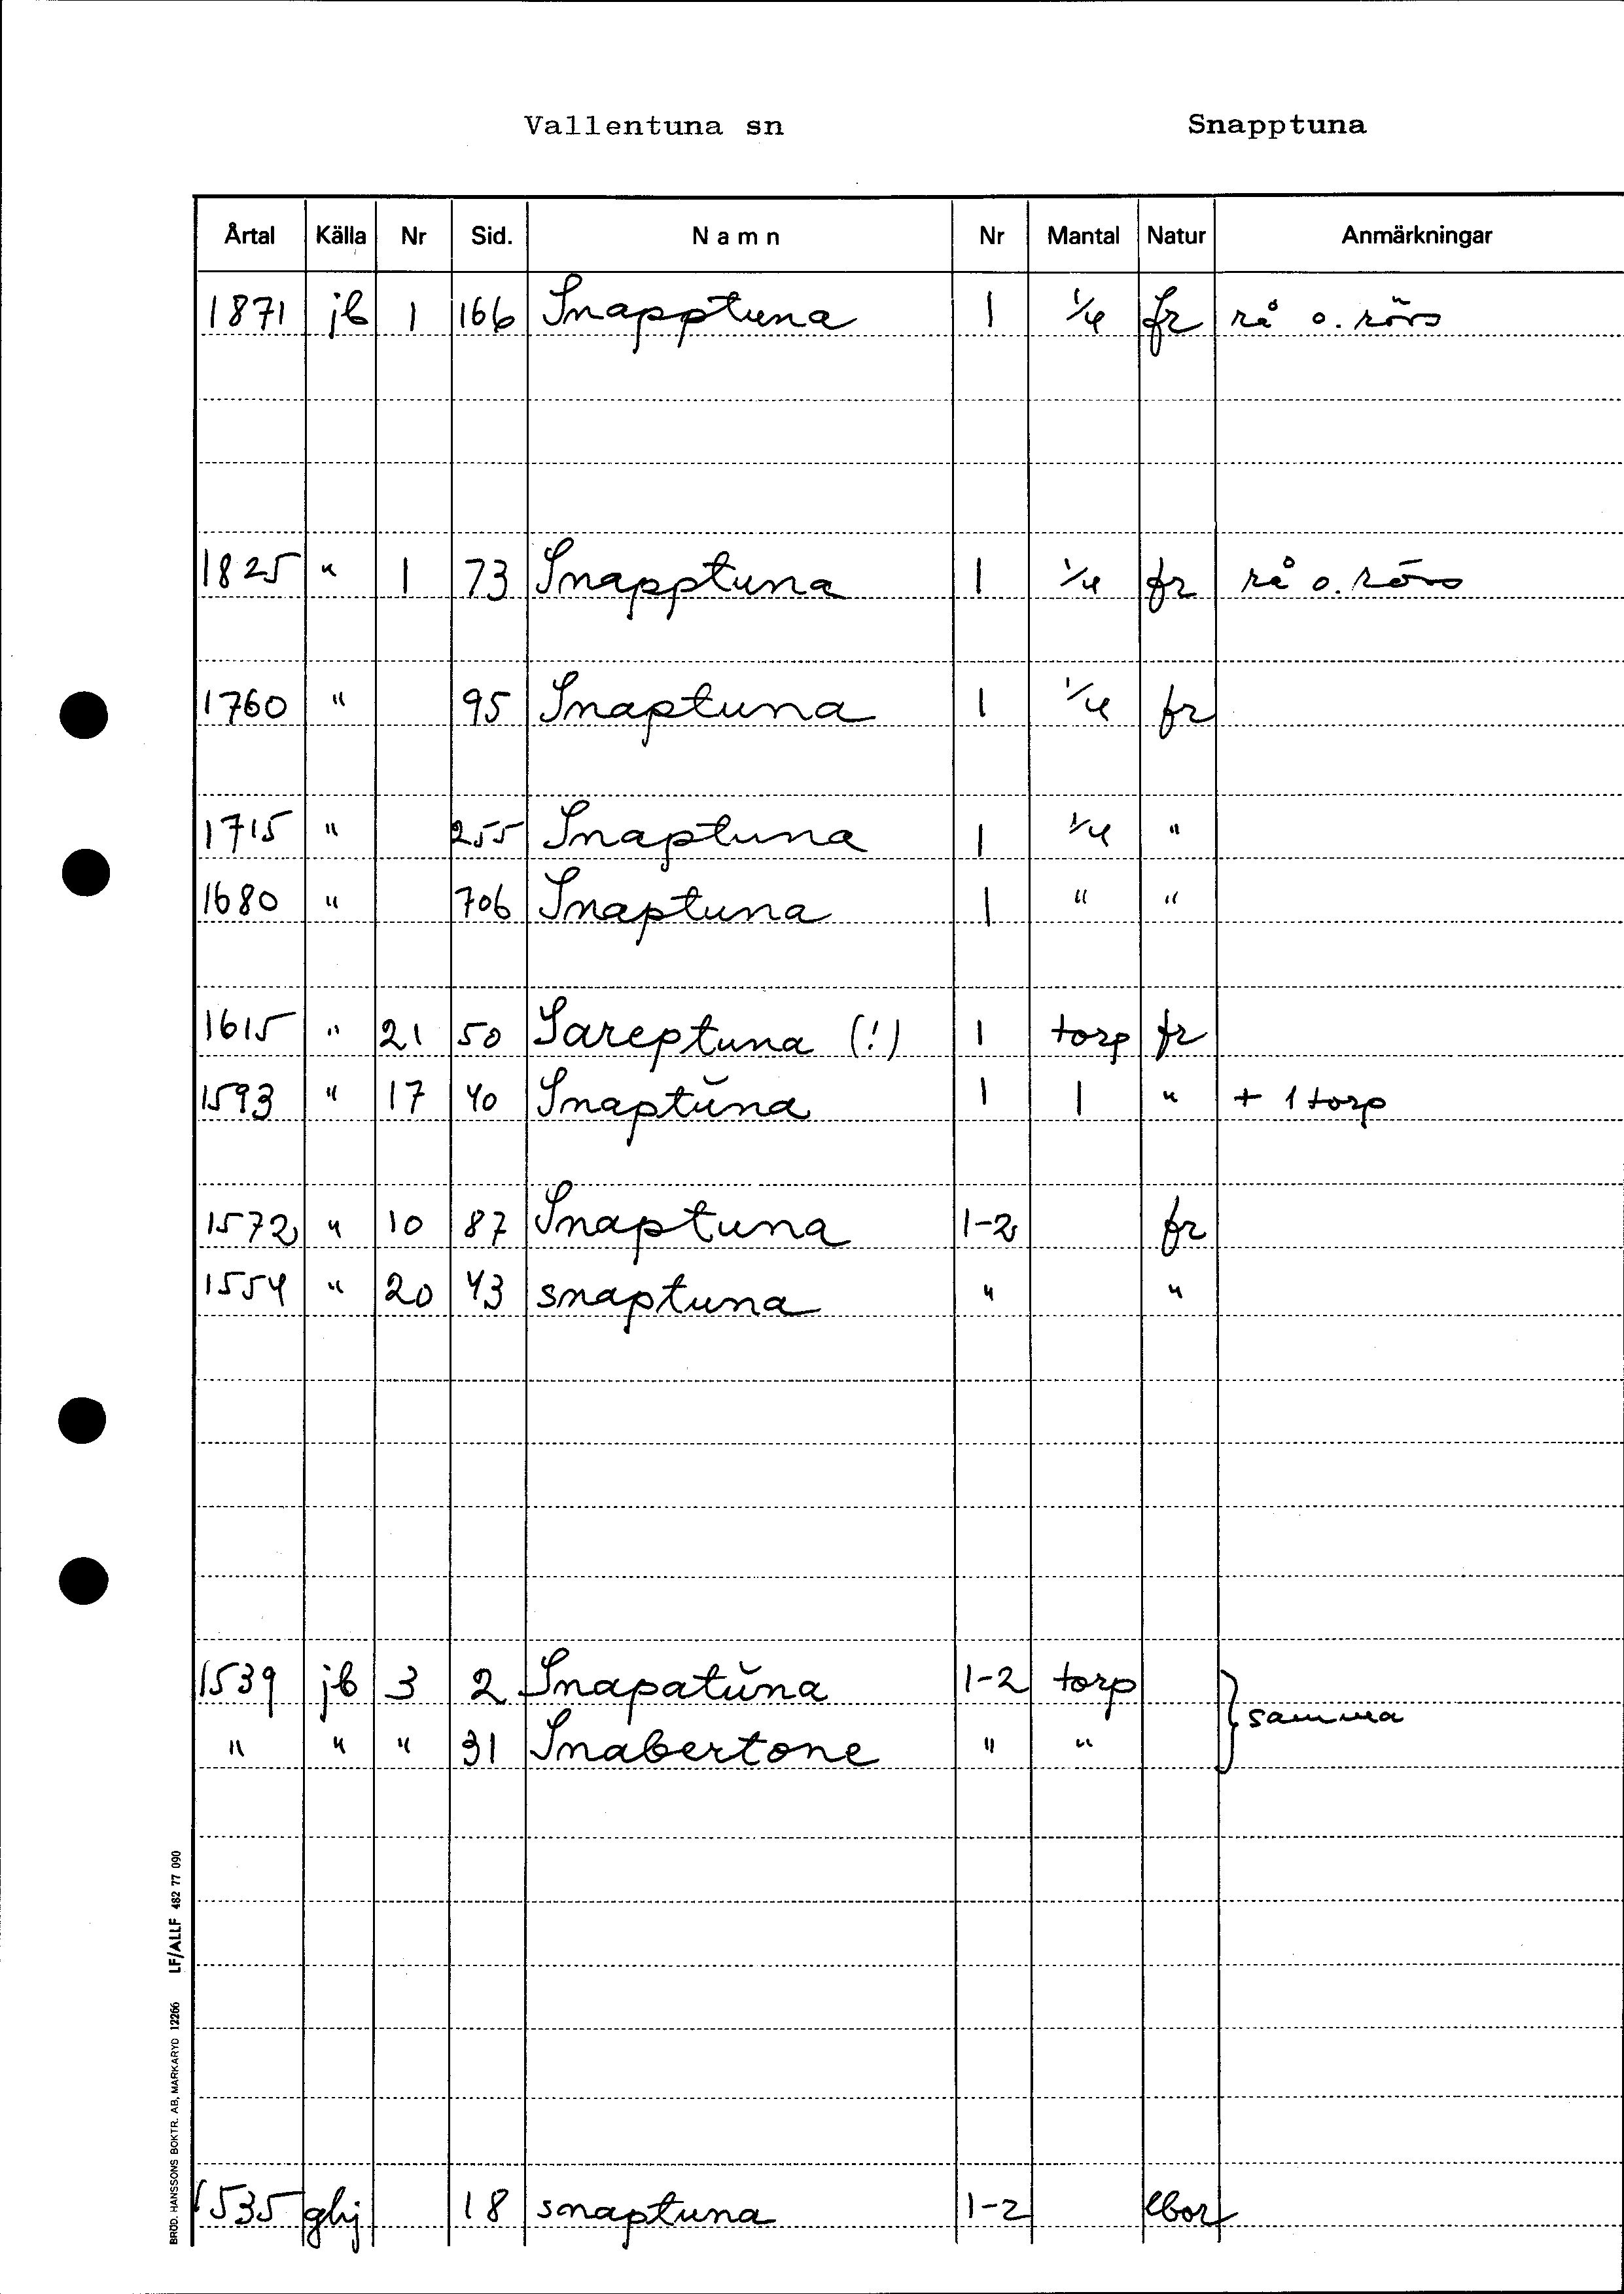 Vallentuna sn Snapptuna
Årtal Källa Nr Sid. Namn Nr Mantal Natur Anmärkningar
1871 jb 1 166 Snapptuna 1 1/4 fr rå o. rörs
1825 " 1 73 Snapptuna 1 1/4 fr rå o. rörs
1760 " 95 Snaptuna 1 1/4 fr
1715 " 255 Snaptuna 1 1/4 "
1680 " 706 Snaptuna 1 " "
1615 " 21 50 Sareptuna (!) 1 torp fr
1593 " 17 40 Snaptŭna 1 1 " + 1 torp
1572 " 10 87 Snaptuna 1-2 fr
1554 " 20 43 snaptuna " "
1539 jb 3 2 Snapatŭna 1-2 torp
samma
" " " 31 Snabertone " "
1535 ghj 18 snaptuna 1-2
BRÖD. HANSSONS BOKTR. AB, MARKARYD 12266 LF/ALLF 482 77 090